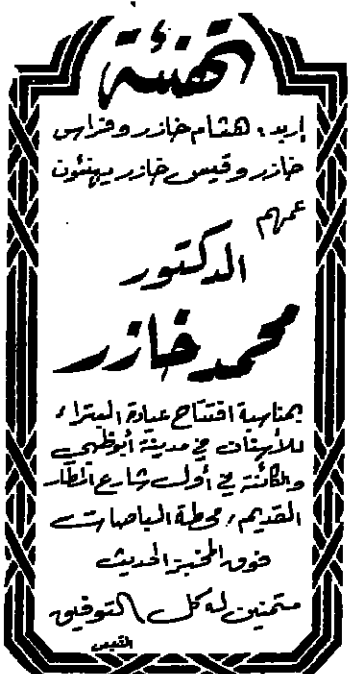 تهنئة
إربد، هشام خازر وفراس
خازر وقيس خازر يهنئون
عمهم
الدكتور
محمد خازر
بمناسبة افتتاح عيادة البتراء
للأسنان في مدينة أبوظبي
والكائنة في أول شارع المطار
القديم، محطة الباصات
فوق المخبز الحديث
متمنين له كل التوفيق